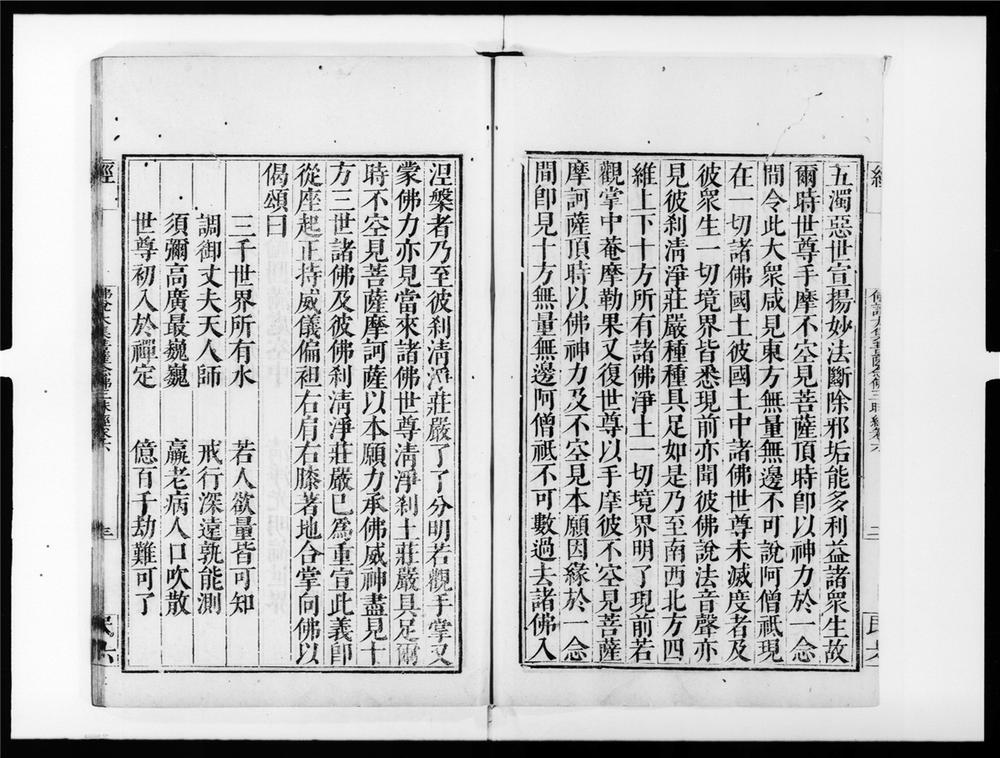 五濁惡世宣揚妙法斷除邪垢能多利益諸衆生故
爾時世尊手摩不空見菩薩頂時卽以神力於一念
間令此大衆咸見東方無量無邊不可說阿僧祇現
在一切諸佛國土彼國土中諸佛世尊未滅度者及
彼衆生一切境界皆悉現前亦聞彼佛說法音聲亦
見彼刹清淨莊嚴種種具足如是乃至南西北方四
維上下十方所有諸佛淨土一切境界明了現前若
觀掌中菴摩勒果又復世尊以手摩彼不空見菩薩
摩訶薩頂時以佛神力及不空見本願因緣於一念
間卽見十方無量無邊阿僧祇不可數過去諸佛入
涅槃者乃至彼刹清淨莊嚴了了分明若觀手掌又
蒙佛力亦見當來諸佛世尊清淨刹土莊嚴具足爾
時不空見菩薩摩訶薩以本願力承佛威神盡見十
方三世諸佛及彼佛刹清淨莊嚴已爲重宣此義卽
從座起正持威儀偏袒右肩右膝著地合掌向佛以
偈頌曰
三千世界所有水　若人欲量皆可知
調御丈夫天人師　戒行深遠孰能測
須彌高廣最巍巍　羸老病人口吹散
世尊初入於禪定　億百千劫難可了
經
民六